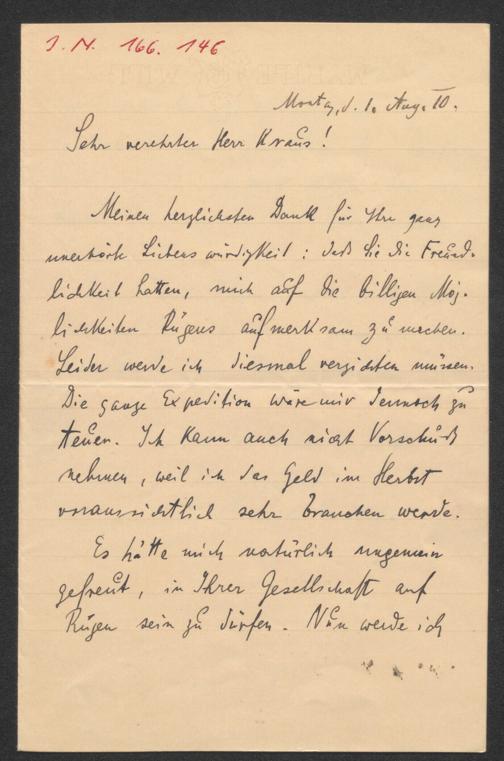 I. N. 166. 146
Montag, d. 1. Aug. 10.
Sehr verehrter Herr Kraus!
Meinen herzlichsten Dank für Ihre ganz
unerhörte Liebenswürdigkeit: daß Sie die Freund-
lichkeit hatten, mich auf die billigen Mög-
lichkeiten Rügens aufmerksam zu machen.
Leider werde ich diesmal verzichten müssen.
Die ganze Expedition wäre mir dennoch zu
teuer. Ich kann auch nicht Vorschuß
nehmen, weil ich das Geld im Herbst
voraussichtlich sehr brauchen werde.
Es hätte mich natürlich ungemein
gefreut, in Ihrer Gesellschaft auf
Rügen sein zu dürfen. Nun werde ich